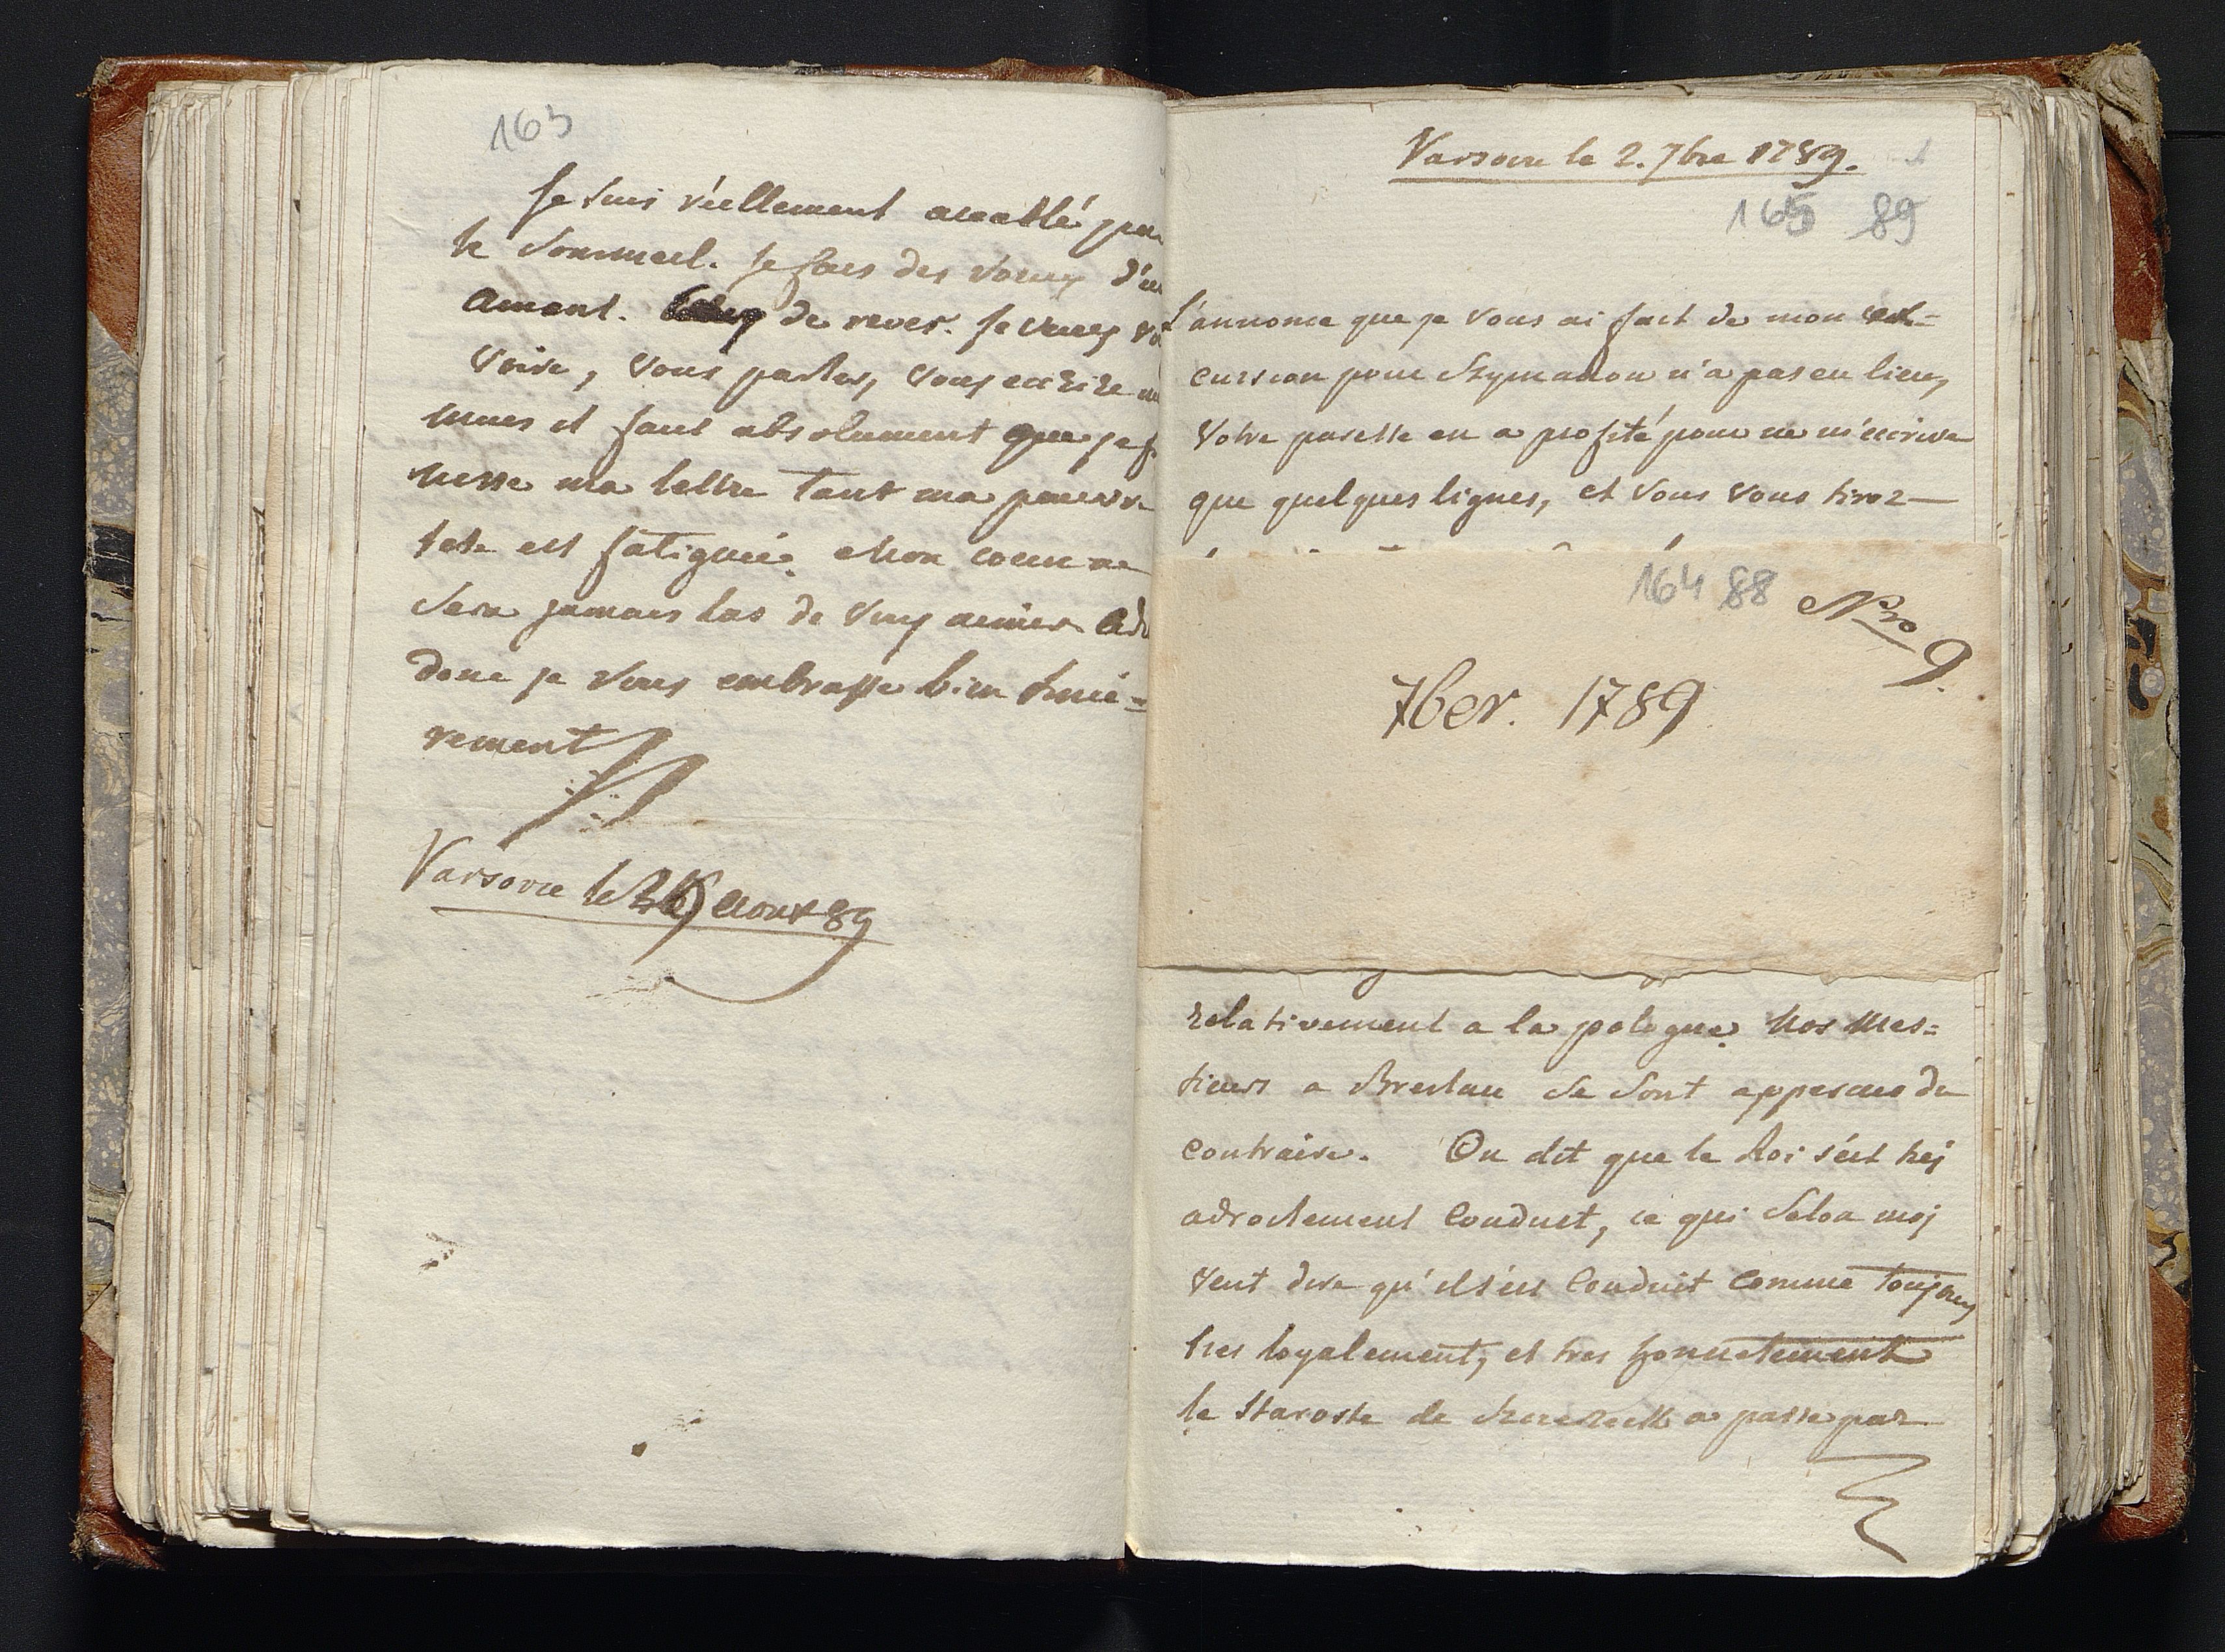 163
Je suis réellement accablé par
le Sommeil. Je fais des voeux d'un
amant. de rever. Je veux
voire, vous parler, vous ecrire
mais il faut absolument que je f
nisse ma lettre tant ma pauvre
tete est fatiguée. Mon coeur ne
Sera jamais las de vous aimer. Adi
donc je vous embrasse bien tendre=
rement
Varsovie le 26 Aout 89
Varsovie le 2. 7bre 1789.
165 89
l'annonce que je vous ai fait de mon ex=
cursion pour Szymanow n'a pas eu lieu,
Votre paresse en a profité pour ne m'écrire
que quelques lignes, et vous vous tirez
164 88 Nro 9.
7ber. 1789
relativement a la pologne. Nos Mes=
sieurs a Breslau se sont apperçus du
contraire. On dit que le Roi s'est trés
adroitement conduit, ce qui selon moi
veut dire qu'il s'est conduit comme toujours
tres loyalement, et tres honnetement
le Staroste de a passé par